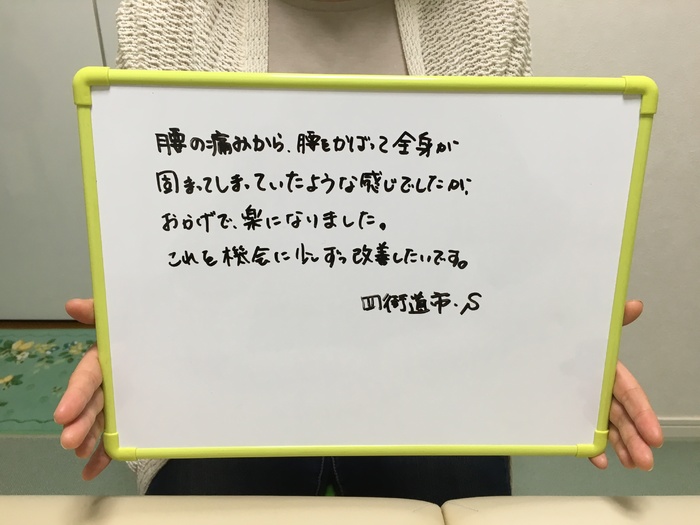 腰の痛みから、腰をかばって全身が
固まってしまっていたような感じでしたが、
おかげで、楽になりました。
これを機会に少しずつ改善したいです。
四街道市.S